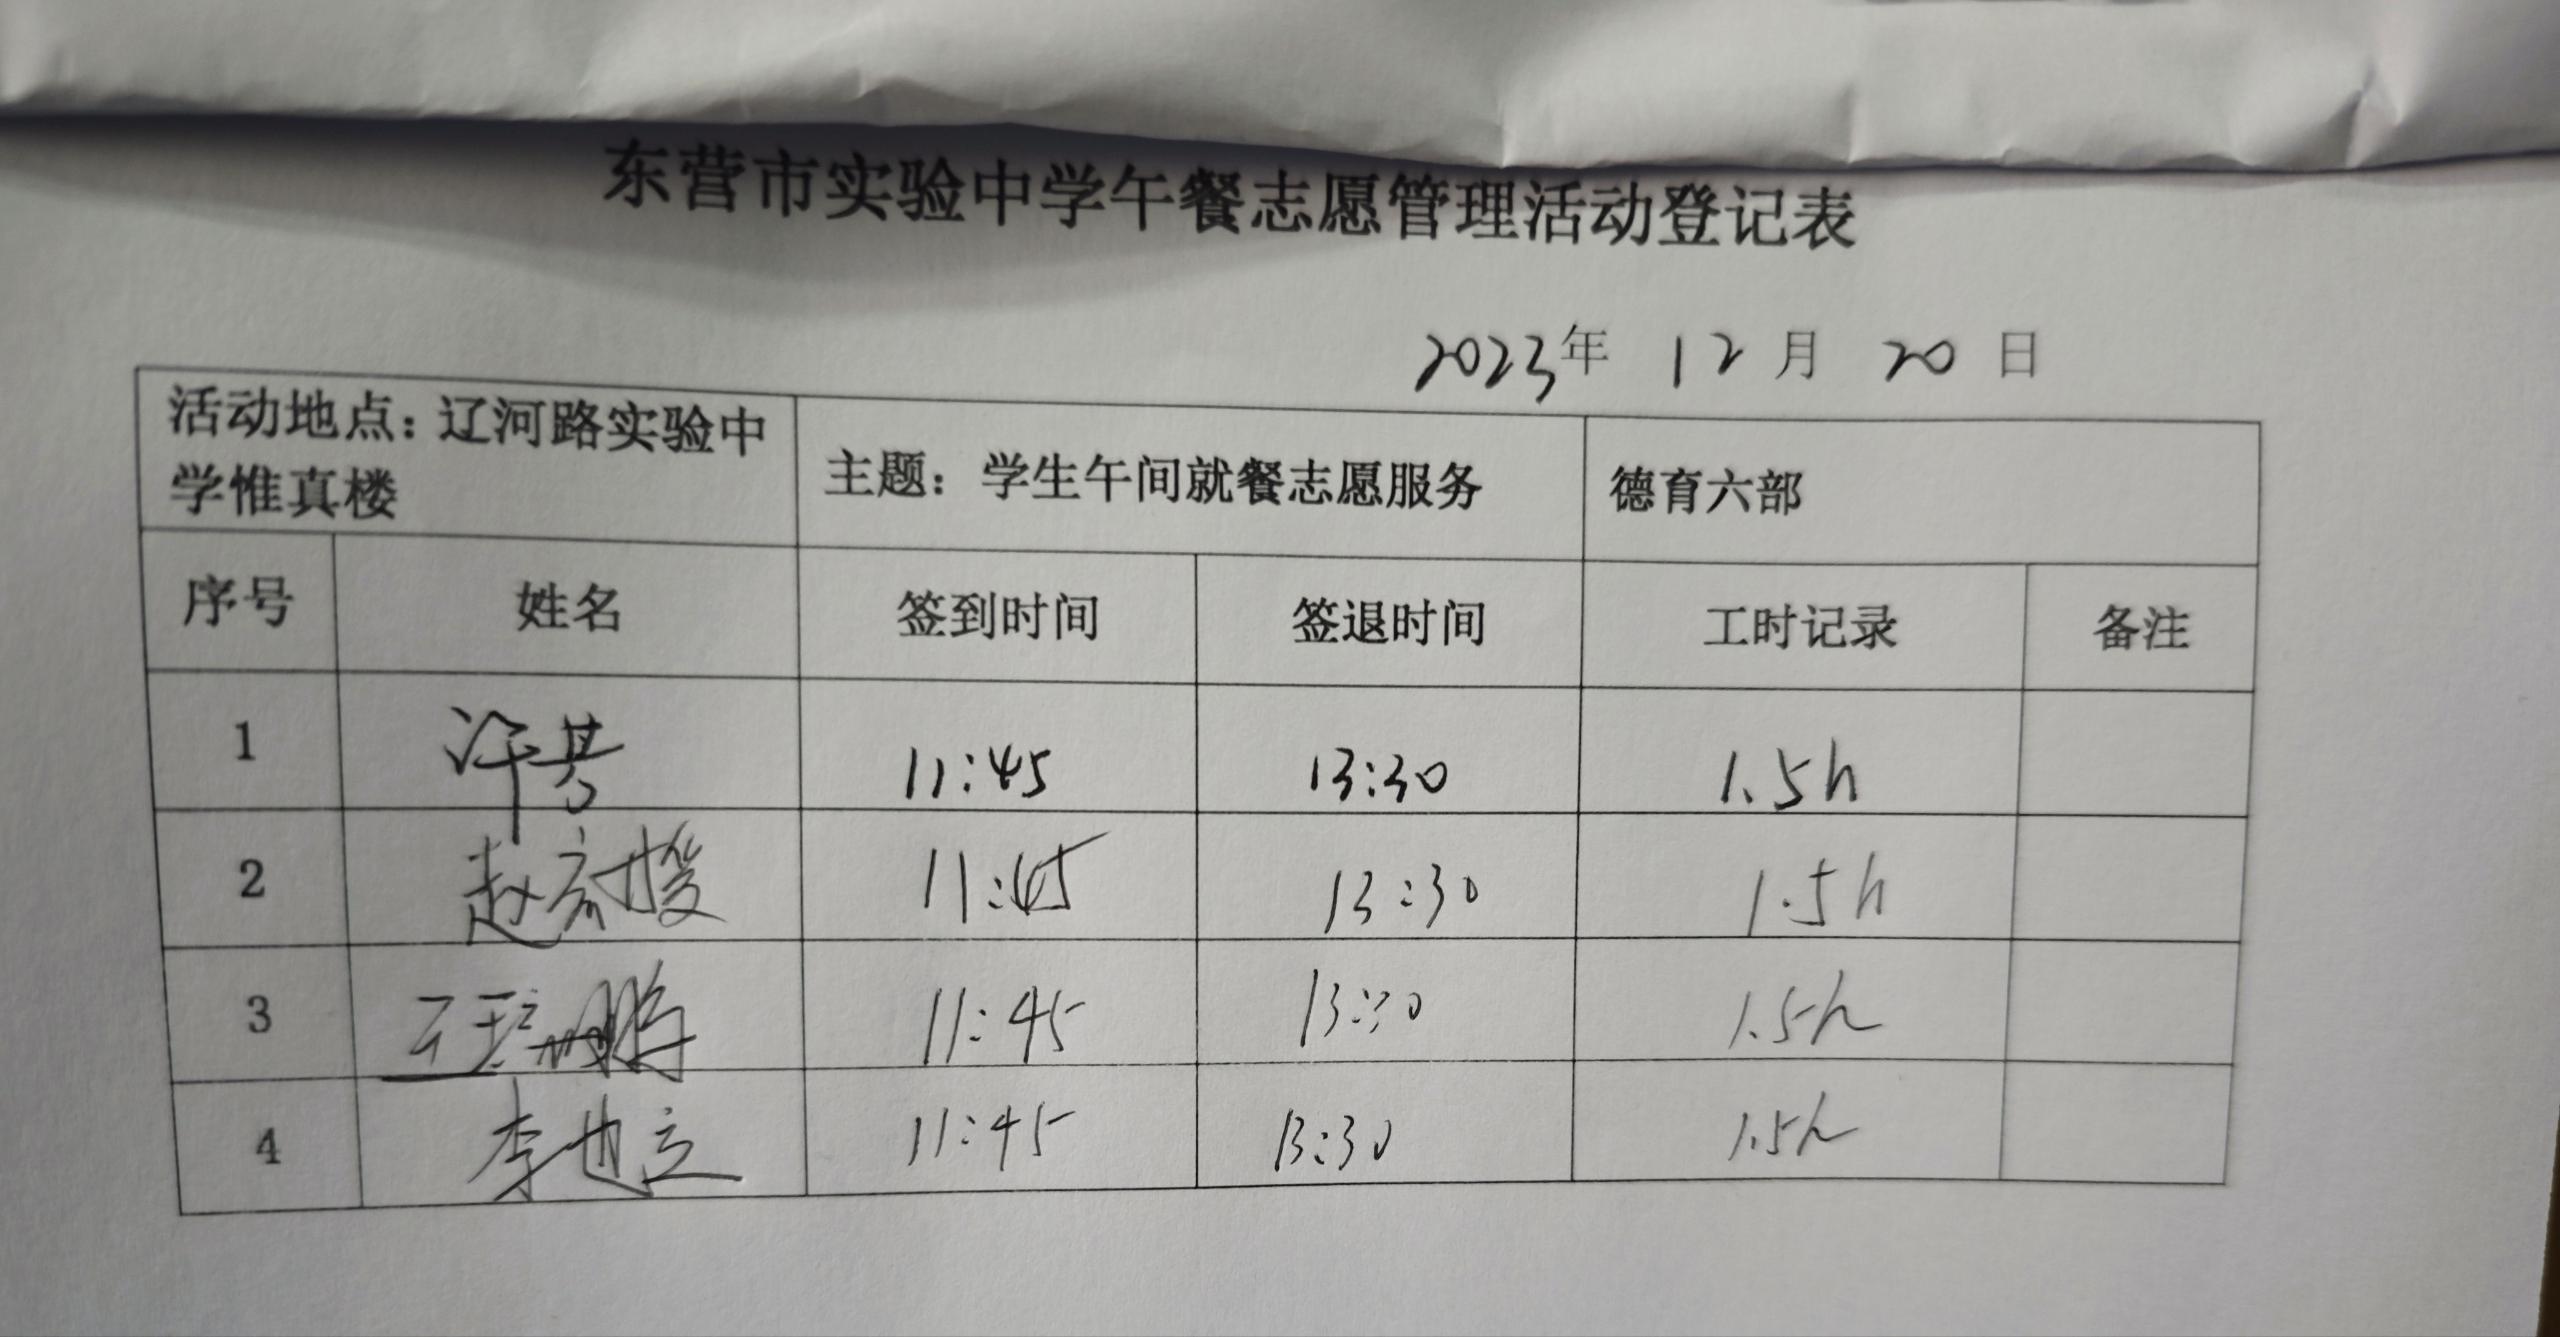 东营市实验中学午餐志愿管理活动登记表
2023年 12月 20日
活动地点：辽河路实验中
学惟真楼
主题：学生午间就餐志愿服务
德育六部
序号 姓名 签到时间 签退时间 工时记录 备注
1 许芳 11:45 13:30 1.5h
2 赵 11:45 13:30 1.5h
3 王 鹏 11:45 13:30 1.5h
4 李也立 11:45 13:30 1.5h